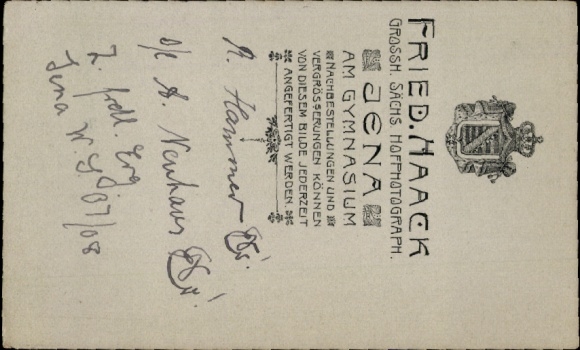 FRIED. HAACK
GROSSH. SÄCHS. HOFPHOTOGRAPH.
JENA
AM GYMNASIUM
NACHBESTELLUNGEN UND
VERGRÖSSERUNGEN KÖNNEN
VON DIESEM BILDE JEDERZEIT
ANGEFERTIGT WERDEN.
A. Hammer
s/l A. Neuhaus
z. frdl. Erg
Jena W. S. 07/08